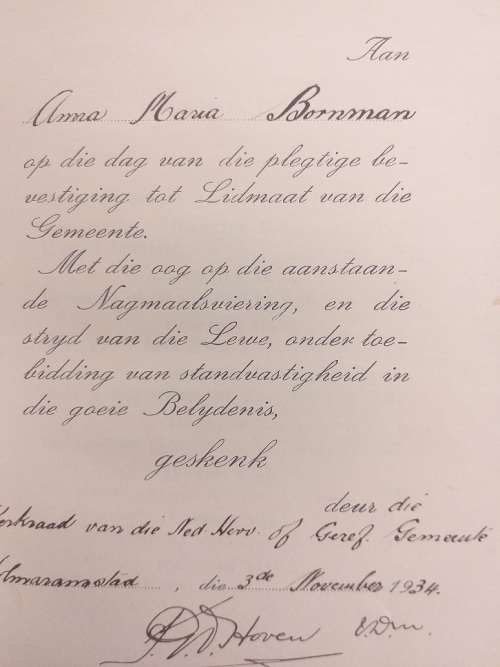 Aan
Anna Maria Bornman
op die dag van die plegtige be-
vestiging tot Lidmaat van die
Gemeente.
Met die oog op die aanstaan-
de Nagmaalsviering, en die
stryd van die Lewe, onder toe-
bidding van standvastigheid in
die goeie Belydenis,
geskenk
deur die
Kerkraad van die Ned. Herv. of Geref. Gemeente
lmaransstad, die 3de November 1934.
Hoven V.D.M.